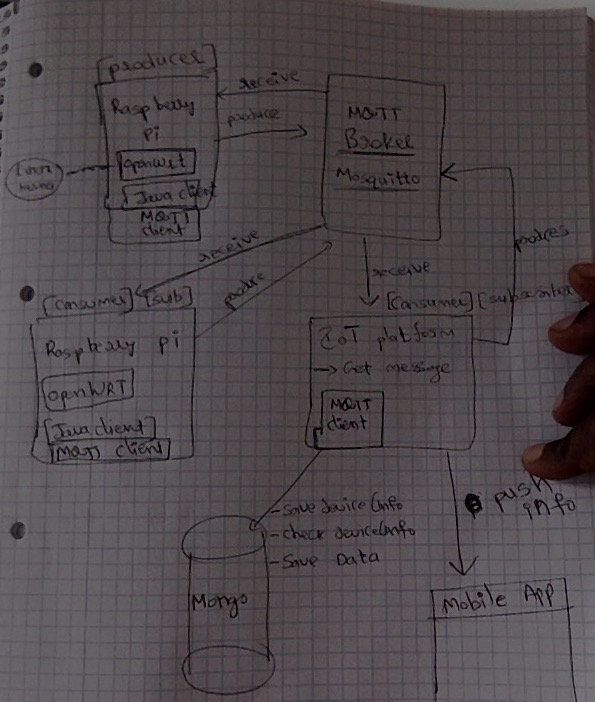 [producer]
Raspberry
Pi
OpenWrt
Java client
MQTT
client
receive
produce
MQTT
Broker
Mosquitto
receive
produce
receive
[Consumer] [sub]
Raspberry Pi
OpenWRT
Java client
MQTT client
[Consumer] [subscriber
IoT platform
→ Get message
MQTT
client
- Save device Info
- check device Info
- Save Data
Mongo
push
info
Mobile App